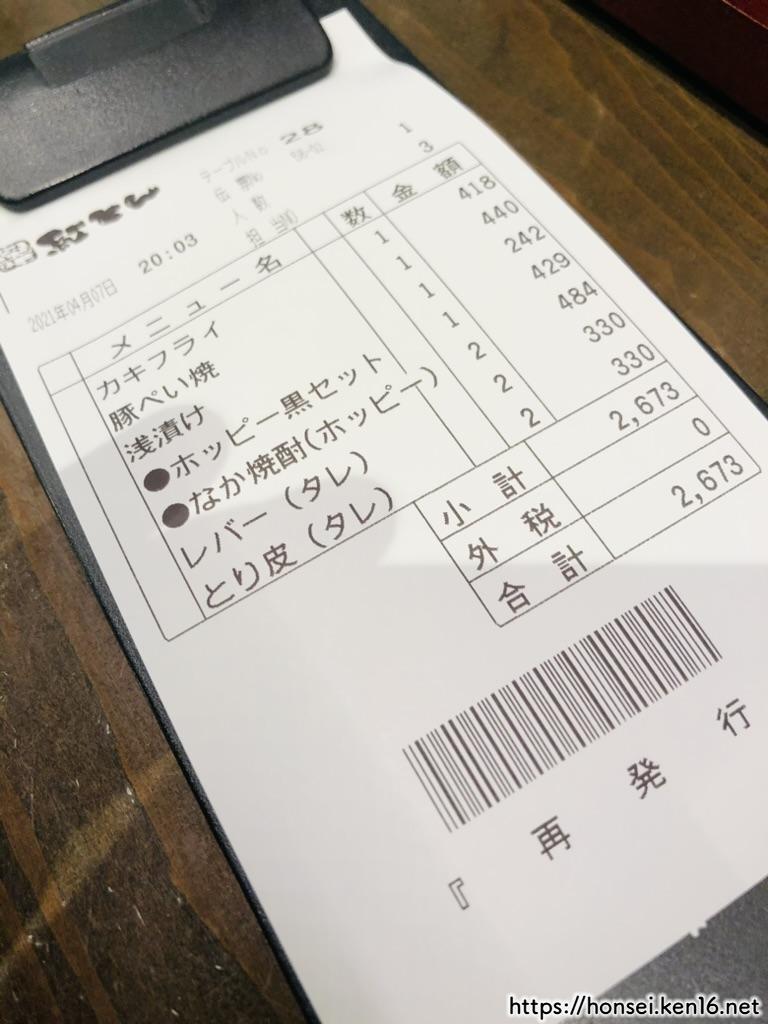 テーブルNo 28
伝票No 58-02 1
人数 3
担当NO
2021年04月07日 20:03
メニュー名 数 金額
カキフライ 1 418
豚ぺい焼 1 440
浅漬け 1 242
●ホッピー黒セット 1 429
●なか焼酎(ホッピー) 2 484
レバー(タレ) 2 330
とり皮(タレ) 2 330
小計 2,673
外税 0
合計 2,673
『再発行
https://honsei.ken16.net